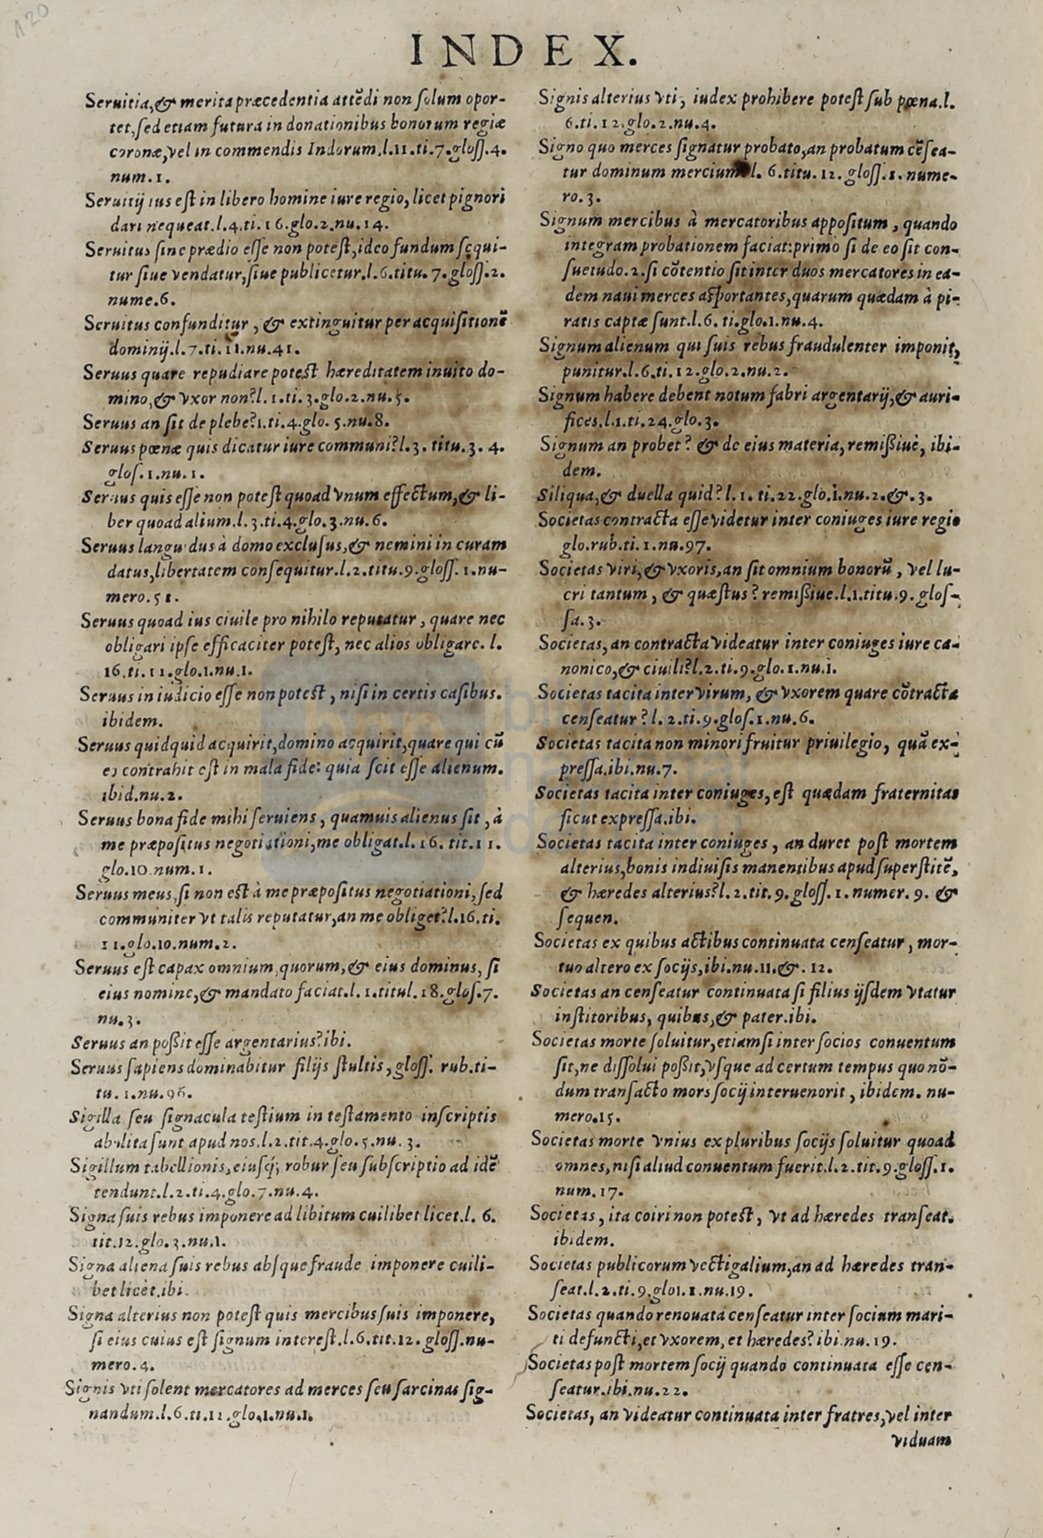 INDEX.
Seruitia, & merita præcedentia attẽdi non solum opor-
tet, sed etiam futura in donationibus bonorum regiæ
coronæ, vel in commendis Indorum.l.11.ti.7.gloss.4.
num.1.
Seruitij ius est in libero homine iure regio, licet pignori
dari nequeat.l.4.ti.16.glo.2.nu.14.
Seruitus sine prædio esse non potest, ideo fundum sequi-
tur siue vendatur, siue publicetur.l.6.titu.7.gloss.2.
nume.6.
Seruitus confunditur, & extinguitur per acquisitionẽ
dominij.l.7.ti.11.nu.41.
Seruus quare repudiare potest hæreditatem inuito do-
mino, & vxor non?l.1.ti.3.glo.2.nu.5.
Seruus an sit de plebe?1.ti.4.glo.5.nu.8.
Seruus pœnæ quis dicatur iure communi?l.3.titu.3.4.
glos.1.nu.1.
Seruus quis esse non potest quoad vnum effectum, & li-
ber quoad alium.l.3.ti.4.glo.3.nu.6.
Seruus languidus à domo exclusus, & nemini in curam
datus, libertatem consequitur.l.2.titu.9.gloss.1.nu-
mero.51.
Seruus quoad ius ciuile pro nihilo reputatur, quare nec
obligari ipse efficaciter potest, nec alios obligare. l.
16.ti.11.glo.1.nu.1.
Seruus in iudicio esse non potest, nisi in certis casibus.
ibidem.
Seruus quidquid acquirit, domino acquirit, quare qui cũ
eo contrahit est in mala fide: quia scit esse alienum.
ibid.nu.2.
Seruus bona fide mihi seruiens, quamuis alienus sit, à
me præpositus negotiationi, me obligat.l.16.tit.11.
glo.10.num.1.
Seruus meus, si non est à me præpositus negotiationi, sed
communiter vt talis reputatur, an me obliget?l.16.ti.
11.glo.10.num.2.
Seruus est capax omnium, quorum, & eius dominus, si
eius nomine, & mandato faciat.l.1.titul.18.glos.7.
nu.3.
Seruus an poßit esse argentarius?ibi.
Seruus sapiens dominabitur filijs stultis, gloss. rub.ti-
tu.1.nu.96.
Sigilla seu signacula testium in testamento inscriptis
abolita sunt apud nos.l.2.tit.4.glo.5.nu.3.
Sigillum tabellionis, eiusq; robur seu subscriptio ad idẽ
tendunt.l.2.ti.4.glo.7.nu.4.
Signa suis rebus imponere ad libitum cuilibet licet.l. 6.
tit.12.glo.3.nu.1.
Signa aliena suis rebus absque fraude imponere cuili-
bet licèt.ibi.
Signa alterius non potest quis mercibus suis imponere,
si eius cuius est signum interest.l.6.tit.12.gloss.nu-
mero.4.
Signis vti solent mercatores ad merces seu sarcinas sig-
nandum.l.6.ti.12.glo.1.nu.1.
Signis alterius vti, iudex prohibere potest sub pœna.l.
6.ti.12.glo.2.nu.4.
Signo quo merces signatur probato, an probatum cẽsea-
tur dominum mercium l. 6.titu.12.gloss.1.nume-
ro.3.
Signum mercibus à mercatoribus appositum, quando
integram probationem faciat: primo si de eo sit con-
suetudo.2.si cõtentio sit inter duos mercatores in ea-
dem naui merces asportantes, quarum quædam à pi-
ratis captæ sunt.l.6.ti.glo.1.nu.4.
Signum alienum qui suis rebus fraudulenter imponit,
punitur.l.6.ti.12.glo.2.nu.2.
Signum habere debent notum fabri argentarij, & auri-
fices.l.1.ti.24.glo.3.
Signum an probet? & de eius materia, remißiuè, ibi-
dem.
Siliqua, & duella quid?l.1.ti.22.glo.1.nu.2.&.3.
Societas contracta esse videtur inter coniuges iure regio
glo.rub.ti.1.nu.97.
Societas viri, & vxoris, an sit omnium bonorũ, vel lu-
cri tantum, & quæstus? remißiue.l.1.titu.9.glos-
sa.3.
Societas, an contracta videatur inter coniuges iure ca-
nonico, & ciuili?l.2.ti.9.glo.1.nu.1.
Societas tacita inter virum, & vxorem quare cõtracta
censeatur?l.2.ti.9.glos.1.nu.6.
Societas tacita non minori fruitur priuilegio, quã ex-
pressa.ibi.nu.7.
Societas tacita inter coniuges, est quædam fraternitas
sicut expressa.ibi.
Societas tacita inter coniuges, an duret post mortem
alterius, bonis indiuisis manentibus apud superstitẽ,
& hæredes alterius?l.2.tit.9.gloss.1.numer.9. &
sequen.
Societas ex quibus actibus continuata censeatur, mor-
tuo altero ex socijs, ibi.nu.11.&.12.
Societas an censeatur continuata si filius ijsdem vtatur
institoribus, quibus, & pater.ibi.
Societas morte soluitur, etiamsi inter socios conuentum
sit, ne dissolui poßit, vsque ad certum tempus quo nõ-
dum transacto mors socij interuenorit, ibidem. nu-
mero.15.
Societas morte vnius ex pluribus socijs soluitur quoad
omnes, nisi aliud conuentum fuerit.l.2.tit.9.gloss.1.
num.17.
Societas, ita coiri non potest, vt ad hæredes transeat.
ibidem.
Societas publicorum vectigalium, an ad hæredes tran-
seat.l.2.ti.9.glos.1.nu.19.
Societas quando renouata censeatur inter socium mari-
ti defuncti, et vxorem, et hæredes? ibi nu.19.
Societas post mortem socij quando continuata esse cen-
seatur.ibi.nu.22.
Societas, an videatur continuata inter fratres, vel inter
viduam